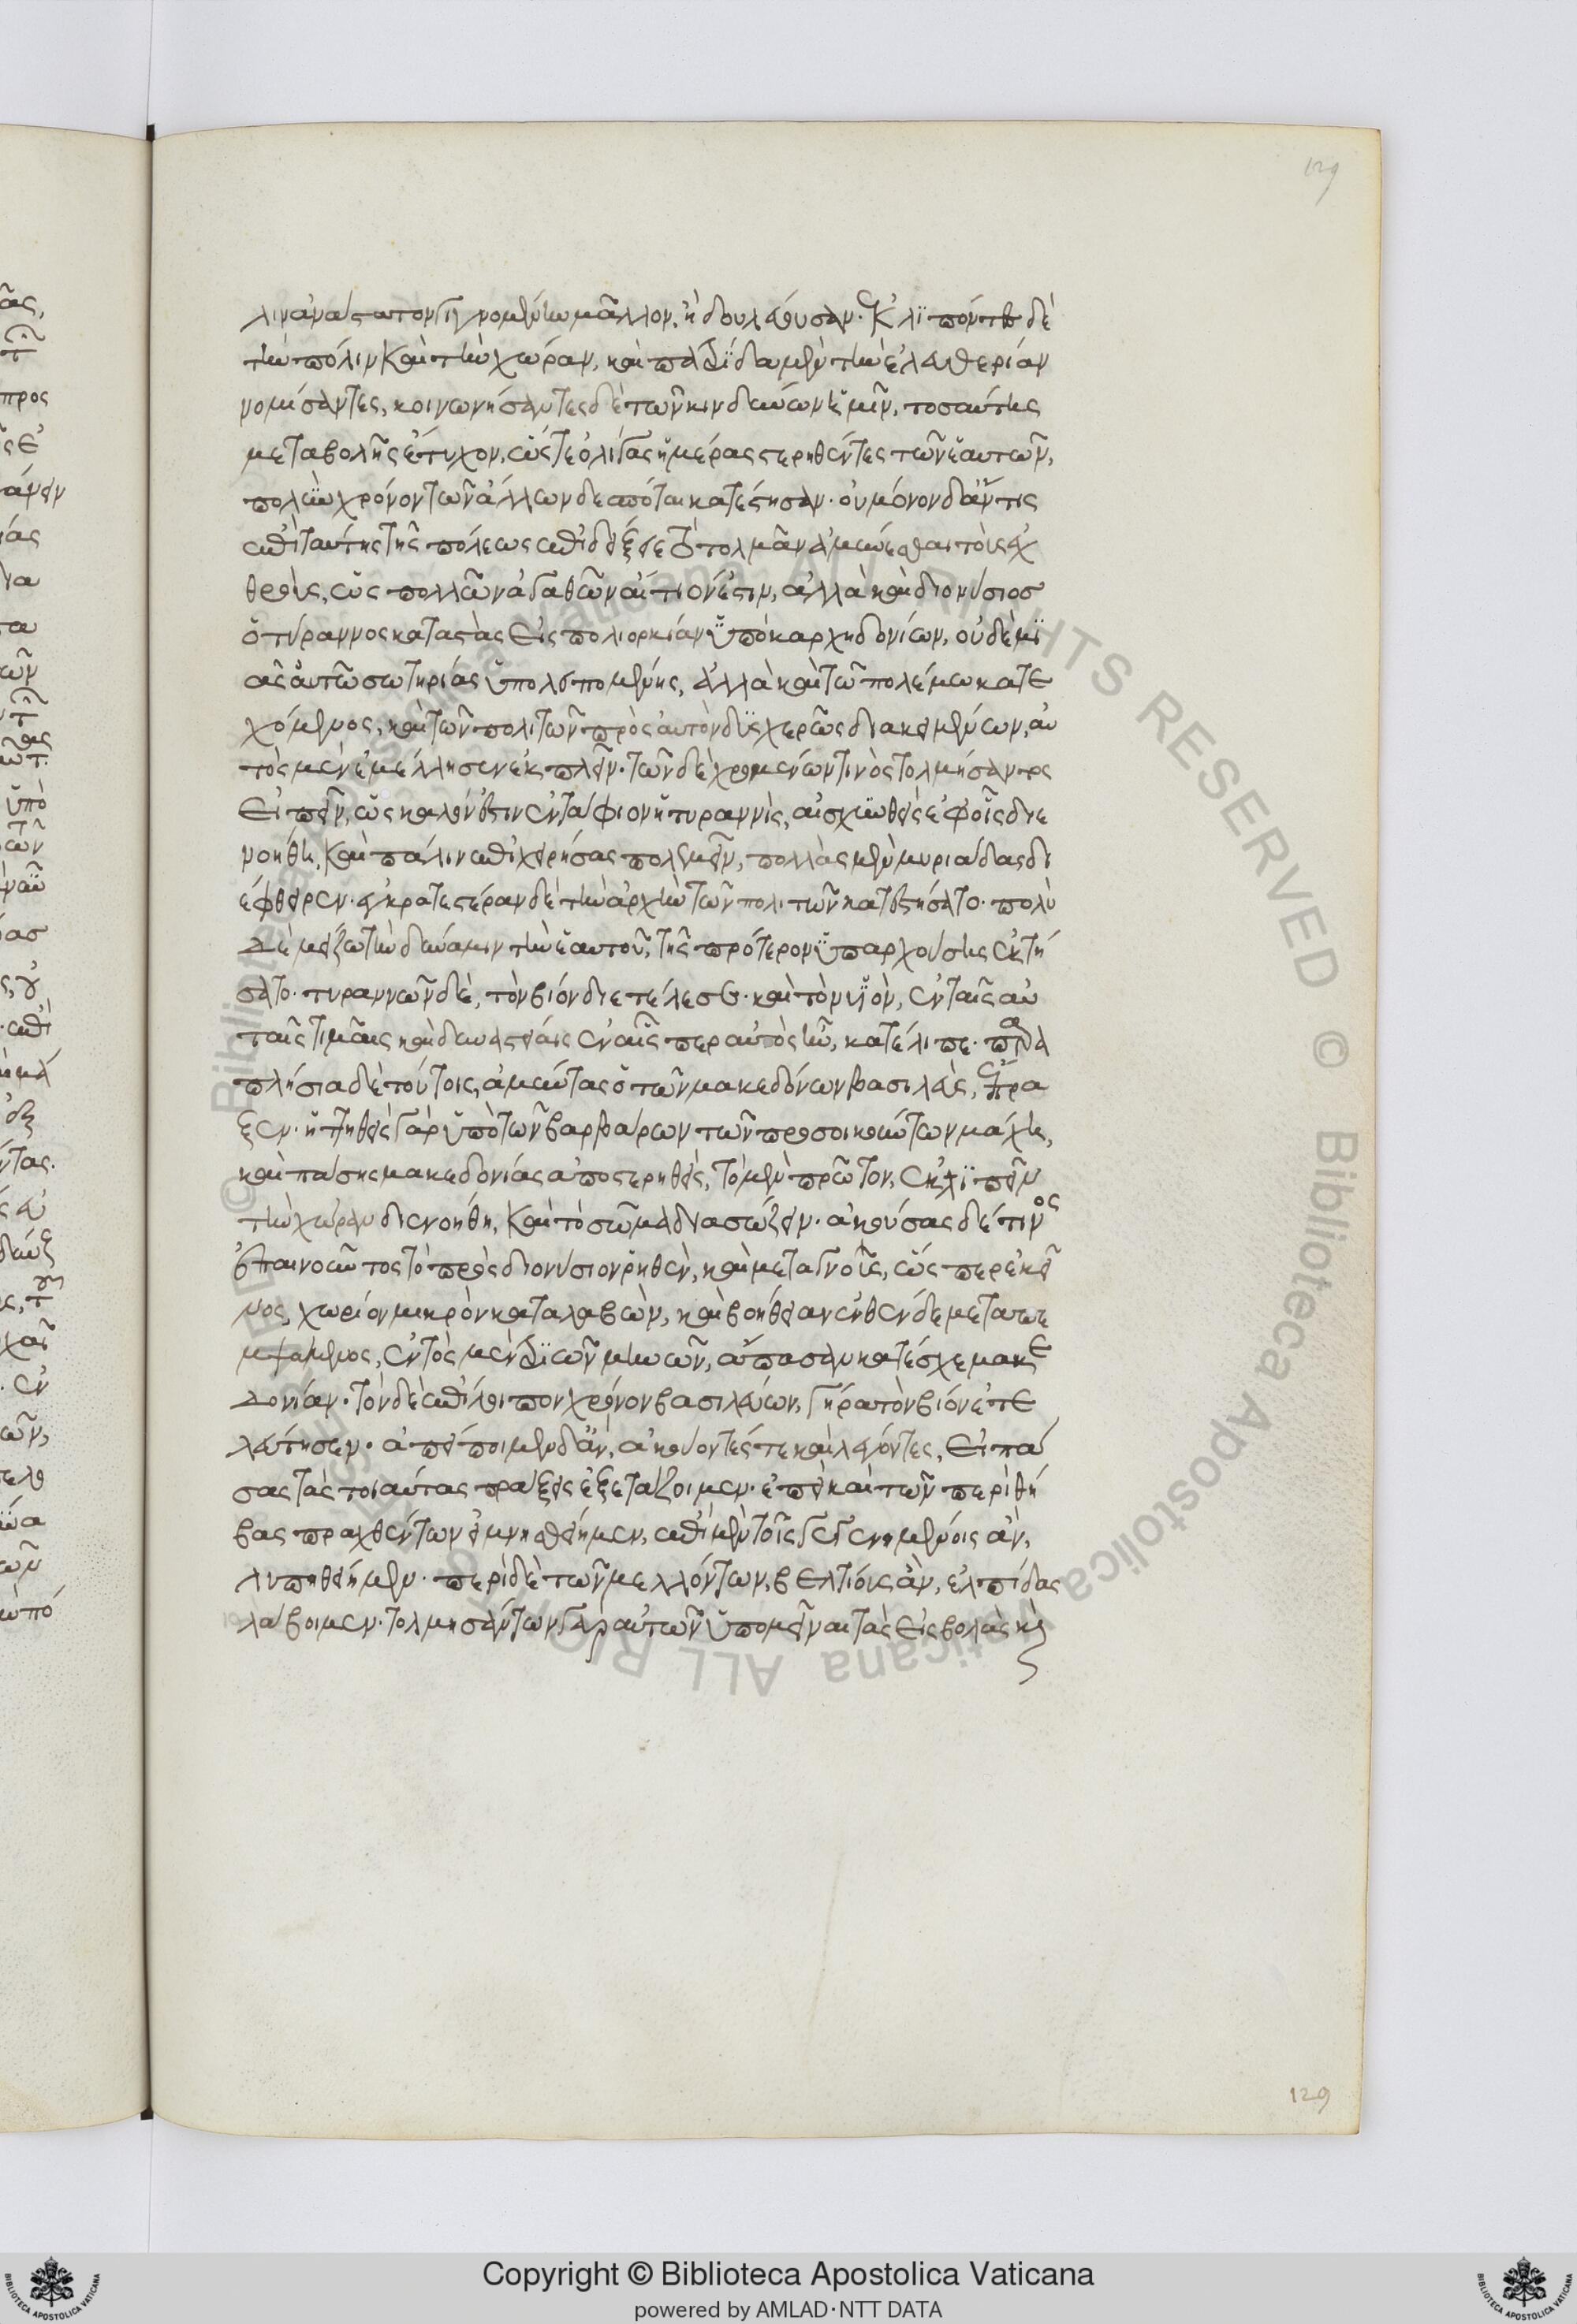 λιν ἀνάστατον γιγνομένην μᾶλλον, ἢ δουλεύουσαν. ἐκλιπόντες δὲ
τὴν πόλιν καὶ τὴν χώραν, καὶ πατρίδα μὲν τὴν ἐλευθερίαν
νομίσαντες, κοινωνήσαντες δὲ τῶν κινδύνων ἡμῖν, τοσαύτης
μεταβολῆς ἔτυχον, ὥστε ὀλίγας ἡμέρας στερηθέντες τῶν ἑαυτῶν,
πολὺν χρόνον τῶν ἄλλων δεσπόται κατέστησαν. οὐ μόνον δ' ἄν τις
ἐπὶ ταύτης τῆς πόλεως ἐπιδείξειε τὸ τολμᾶν ἀμύνεσθαι τοὺς ἐχ
θροὺς, ὡς πολλῶν ἀγαθῶν αἴτιόν ἐστιν, ἀλλὰ καὶ διονύσιος
ὁ τύραννος καταστὰς εἰς πολιορκίαν ὑπὸ καρχηδονίων, οὐδεμϊ
ᾶς αὐτῶ σωτηρίας ὑπολειπομένης, ἀλλὰ καὶ τῶ πολέμω κατε
χόμενος, καὶ τῶν πολιτῶν πρὸς αὐτὸν δυσχερῶς διακειμένων, αὐ
τὸς μὲν ἐμέλλησεν ἐκπλεῖν. τῶν δὲ χρωμένων τινὸς τολμήσαντος
εἰπεῖν, ὡς καλόν ἐστιν ἐντάφιον ἡ τυραννὶς, αἰσχυνθεὶς ἐφ' οἷς διε
νοήθη, καὶ πάλιν ἐπιχειρήσας πολεμεῖν, πολλὰς μὲν μυριάδας δι
έφθειρεν. ἐγκρατεστέραν δὲ τὴν ἀρχὴν τῶν πολιτῶν κατεστήσατο. πολὺ
δὲ μείζω τὴν δύναμιν τὴν ἑαυτοῦ, τῆς πρότερον ὑπαρχούσης ἐκτή
σατο. τυραννῶν δὲ, τὸν βίον διετέλεσε. καὶ τὸν υἱὸν, ἐν ταῖς αὐ
ταῖς τιμαῖς καὶ δυναστείαις ἐν αἷς περ αὐτὸς ἦν, κατέλιπε. παρα
πλήσια δὲ τούτοις, ἀμύντας ὁ τῶν μακεδόνων βασιλεὺς, ἔπρα
ξεν. ἡττηθεὶς γὰρ ὑπὸ τῶν βαρβάρων τῶν προσοικούντων μάχη,
καὶ πάσης μακεδονίας ἀποστερηθεὶς, τὸ μὲν πρῶτον, ἐκλϊπεῖν
τὴν χώραν διενοήθη, καὶ τὸ σῶμα διασώζειν. ἀκούσας δέ τινος
ἐπαινοῦντος τὸ πρὸς διονύσιον ῥηθὲν, καὶ μεταγνοὺς, ὥσπερ ἐκεῖ
νος, χωρίον μικρὸν καταλαβὼν, καὶ βοήθειαν ἐνθένδε μεταπε
μψάμενος, ἐντὸς μὲν τριῶν μηνῶν, ἅπασαν κατέσχε μακε
δονίαν. τὸν δὲ ἐπίλοιπον χρόνον βασιλεύων, γήρα τὸν βίον ἐτε
λεύτησεν. ἀπείποιμεν δ' ἂν, ἀκούοντές τε καὶ λέγοντες, εἰ πά
σας τὰς τοιαύτας πράξεις ἐξετάζοιμεν. ἐπεὶ καὶ τῶν περὶ θή
βας πραχθέντων εἰ μνησθείημεν, ἐπὶ μὲν τοῖς γεγενημένοις ἂν,
λυπηθείημεν. περὶ δὲ τῶν μελλόντων, βελτίους ἂν, ἐλπίδας
λάβοιμεν. τολμησάντων γὰρ αὐτῶν ὑπομεῖναι τὰς εἰσβολὰς καὶ
129
129
Copyright © Biblioteca Apostolica Vaticana
powered by AMLAD·NTT DATA